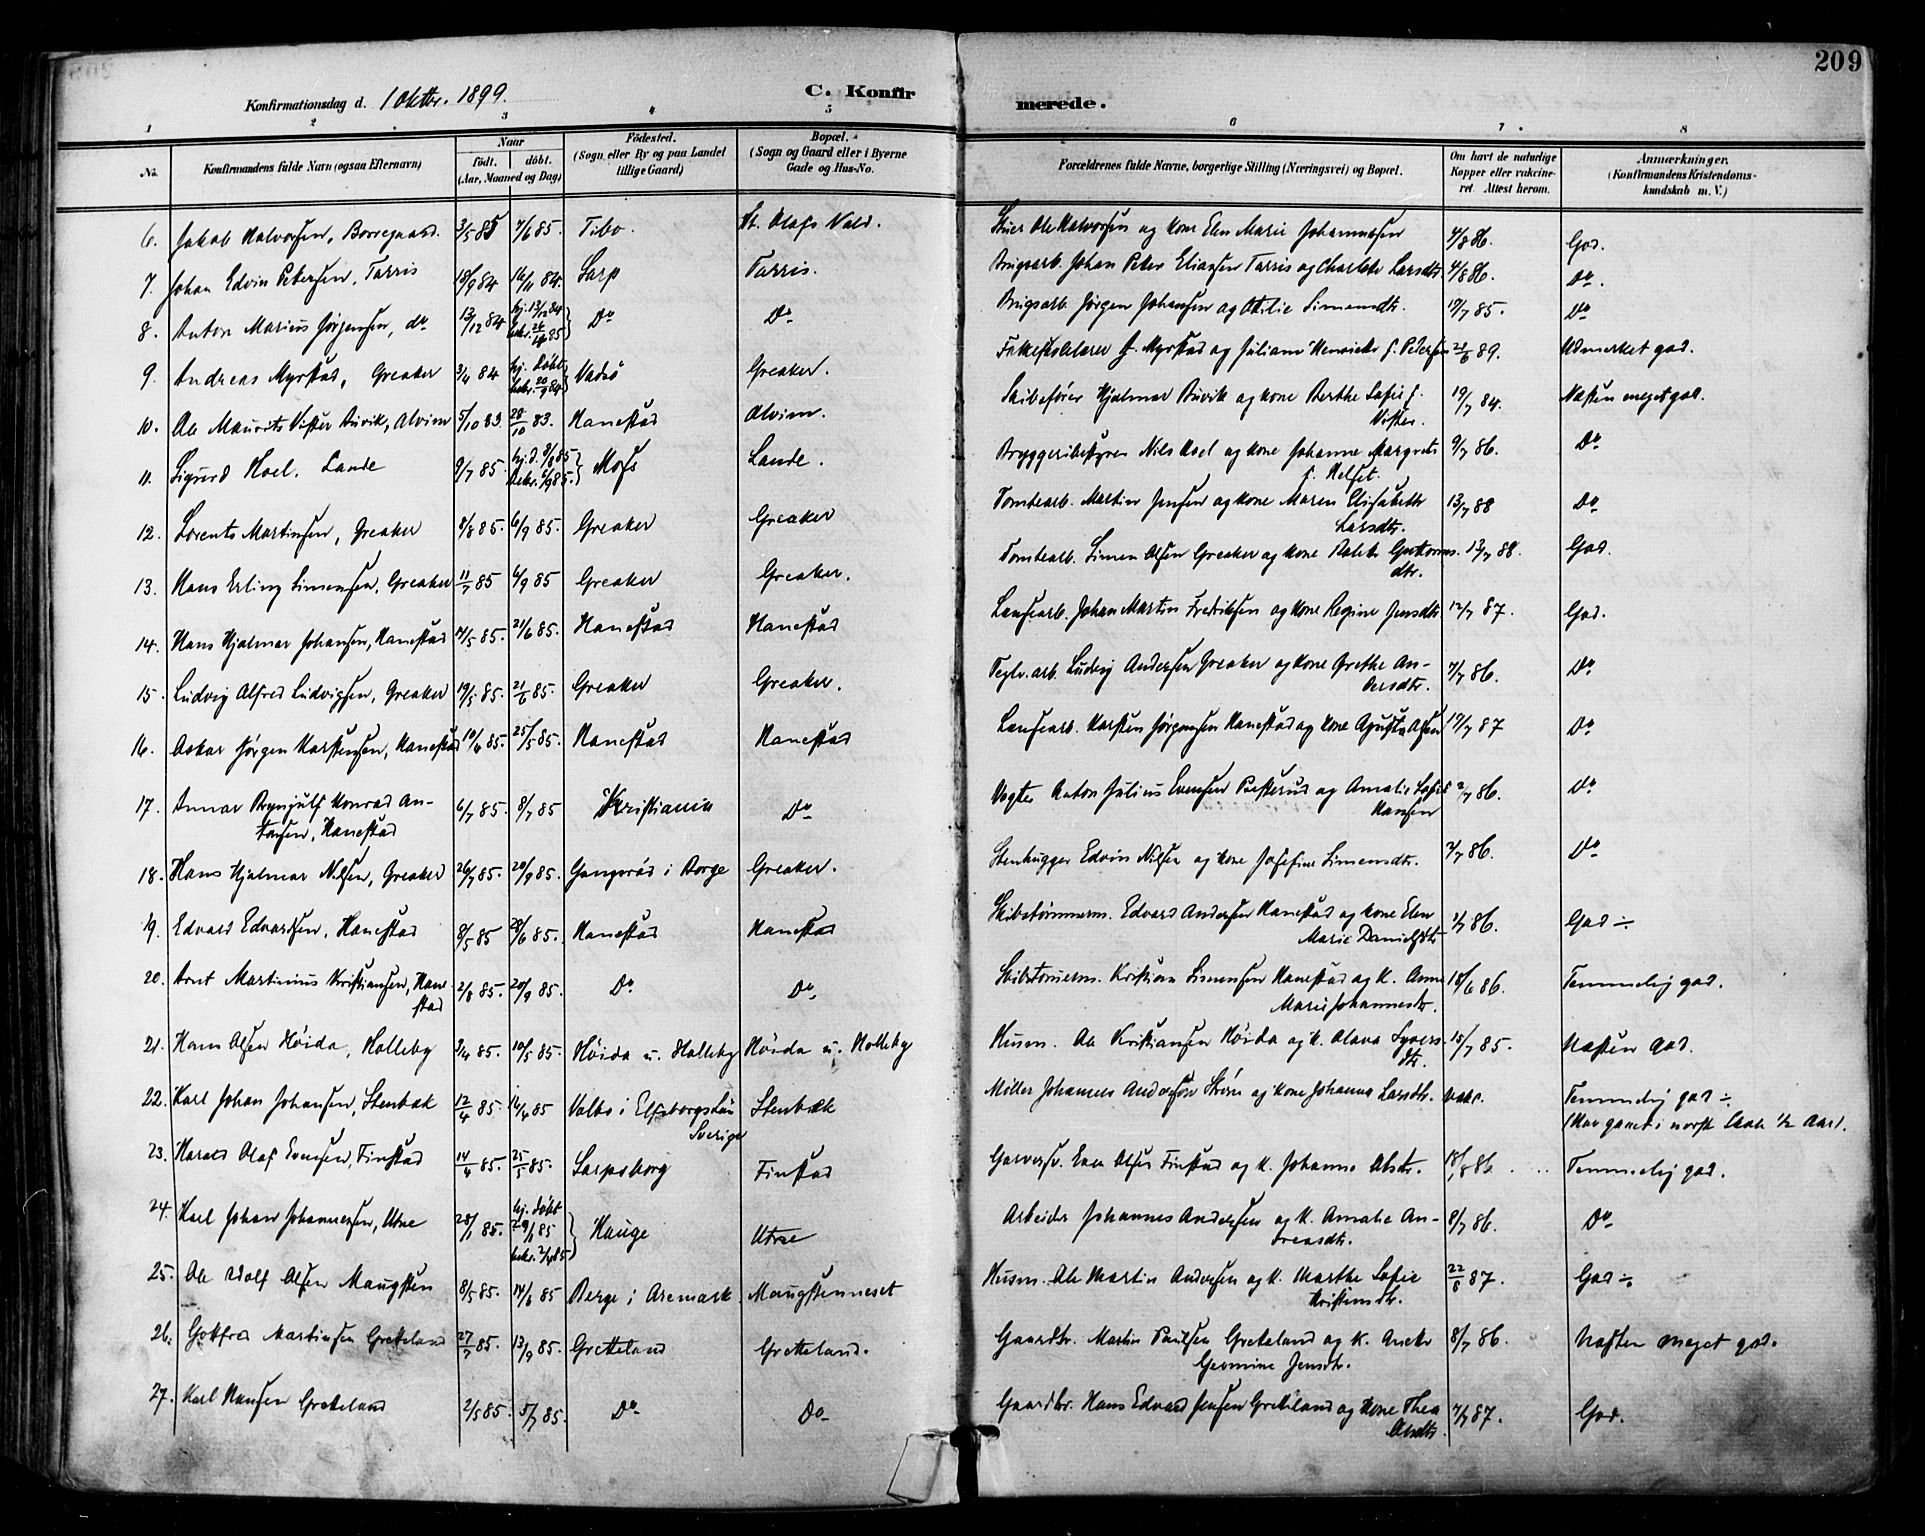 209
Konfirmationsdag d. 1 Oktbr. 1899.
C. Konfirmerede.
1 2 3 4 5 6 7 8
No.
Konfirmandens fulde Navn (ogsaa Efternavn)
Naar
födt. döbt.
(Aar, Maaned og Dag)
Födested.
(Sogn eller By og paa Landet
tillige Gaard)
Bopæl.
(Sogn og Gaard eller i Byerne
Gade og Hus-No.
Forældrenes fulde Navne, borgerlige Stilling (Næringsvei) og Bopæl.
Om havt de naturlige
Kopper eller vakcine-
ret. Attest herom.
Anmærkninger.
(Konfirmandens Kristendoms-
kundskab m. V.)
6. Jakob Halvorsen, Borregaard. 3/5 85 7/6 85. Tibo. St. Olafs Vold. Ole Halvorsen og Kone Elen Marie Johannesen 4/8 86. God.
7. Johan Edvin Petersen, Tarris 18/9 84 16/11 84. Sarp Tarris. Brugsarb. Johan Peter Eliassen Tarris og Charlotte Larsdtr. 4/8 86. Do.
8. Anton Marius Jørgensen, do 13/12 84 hj. 13/12 84
bekr. 26/ 85 Do Do Brugsarb. Jørgen Johansen og Othilie Simensdtr. 19/7 85. Do
9. Andreas Myrstad, Greaker 3/4 84 hj. døbt
bekr. 20/9 84 Vadsö Greaker. Folkeskolelærer Myrstad og Juliane Henriette f. Petersen 89. Udmerket god.
10. Ole Maurits Vister Buvik, Alvim 5/10 83. 28/10 83. Hanestad Alvim. Skibsfører Hjalmar Buvik og Kone Berthe Sofie f.
Vister. 19/7 84. Næsten meget god.
11. Sigurd Hoel. Lande 9/7 85. hj.d. 9/8 85
Bekr. 6/9 85. Moss Lande. Bryggeribestyrer Nils Hoel og Kone Johanne Margrete
f. Helset. 9/7 86. Do
12. Lorents Martinsen, Greaker 8/8 85. 6/9 85. Greaker Greaker Tomtearb. Martin Jensen og Kone Maren Elisabeth
Larsdtr. 13/7 88 Do
13. Hans Erling Simensen, Greaker 11/7 85 6/9 85 Greaker Greaker. Tomtearb. Simen Olsen Greaker og Kone Guttorms-
dtr. 13/7 88. God.
14. Hans Hjalmar Johansen, Hanestad 14/5 85. 21/6 85. Hanestad Hanestad Landsarb. Johan Martin Fredriksen og Kone Regine Jensdtr. 12/7 87. God.
15. Ludvig Alfred Ludvigsen, Greaker 19/5 85. 21/6 85. Greaker Greaker. Teglv.arb. Ludvig Andersen Greaker og Kone Grethe An-
dersdtr. 7/7 86. Do
16. Oskar Jørgen Karstensen, Hanestad 10/4 85. 25/5 85. Hanestad Hanestad Karsten Jørgensen Hanestad og Kone Agusta Olsen 19/7 87 Do
17. Annar Brynjulf Konrad An-
tonsen, Hanestad 6/7 85. 8/7 85 Kristiania Do Vogter Anton Julius Evensen og Amalie Sofie
Hansen 2/7 86. Do
18. Hans Hjalmar Nilsen, Greaker 26/7 85. 20/9 85. i Borge Greaker. Stenhugger Edvin Nilsen og Kone Josefine Simensdtr. 2/7 86. Do
19. Edvard Edvardsen, Hanestad 8/5 85 28/6 85. Hanestad Hanestad Skibstømmerm. Edvard Andersen Hanestad og Kone Elen
Marie Danielsdtr 86. God ÷
20. Arnt Martinius Kristiansen, Hane-
stad 2/8 85. 20/9 85. Do Do Kristian Simensen Hanestad og K. Anne
Marie Johannesdtr. 18/6 86. Temmelig god.
21. Hans Olsen Höida, Holleby 2/4 85. 10/5 85. Höida u. Holleby Höida u. Holleby Husm. Ole Kristiansen Höida og K. Olava Syvers-
dtr. 15/7 85. Næsten god.
22. Karl Johan Johansen, Stenbæk 12/4 85. 14/4 85 Valbo i Elfsborgslän
Sverige Stenbæk Möller Johannes Andersson og Kone Johanna Larsdtr. vakc. Temmelig god ÷
(Har gaaet i norsk Skole 1/2 Aar).
23. Harald Olaf Evensen, Finstad 14/4 85. 25/5 85. Sarpsborg Finstad Garversv. Even Olsen Finstad og K. Johanne Olsdtr. 18/8 86 Temmelig god.
24. Karl Johan Johannesen, Utne 28/1 85. hj. døbt
29/1 85
bekr. 2/4 85 Hauge Utne Arbeider Johannes Andersen og K. Amalie An-
dreasdtr. 8/7 86. Do
25. Ole Adolf Olsen Maugsten 8/5 85. 14/6 85 Berge i Aremark. Maugstenneset Husm. Ole Martin Andersen og K. Marthe Sofie
Kristiansdtr. 22/6 87. God ÷
26. Gotfred Martinsen Gretteland 27/7 85. 13/9 85. Gretteland Gretteland. Gaardbr. Martin Paulsen Gretteland og K. Anette
Germine Jensdtr. 8/7 86. Næsten meget god.
27. Karl Hansen Gretteland 2/5 85. 5/7 85. Do Do Gaardbr. Hans Edvard Jensen Gretteland og Kone Thea
Olsdtr. 7/7 87. God.